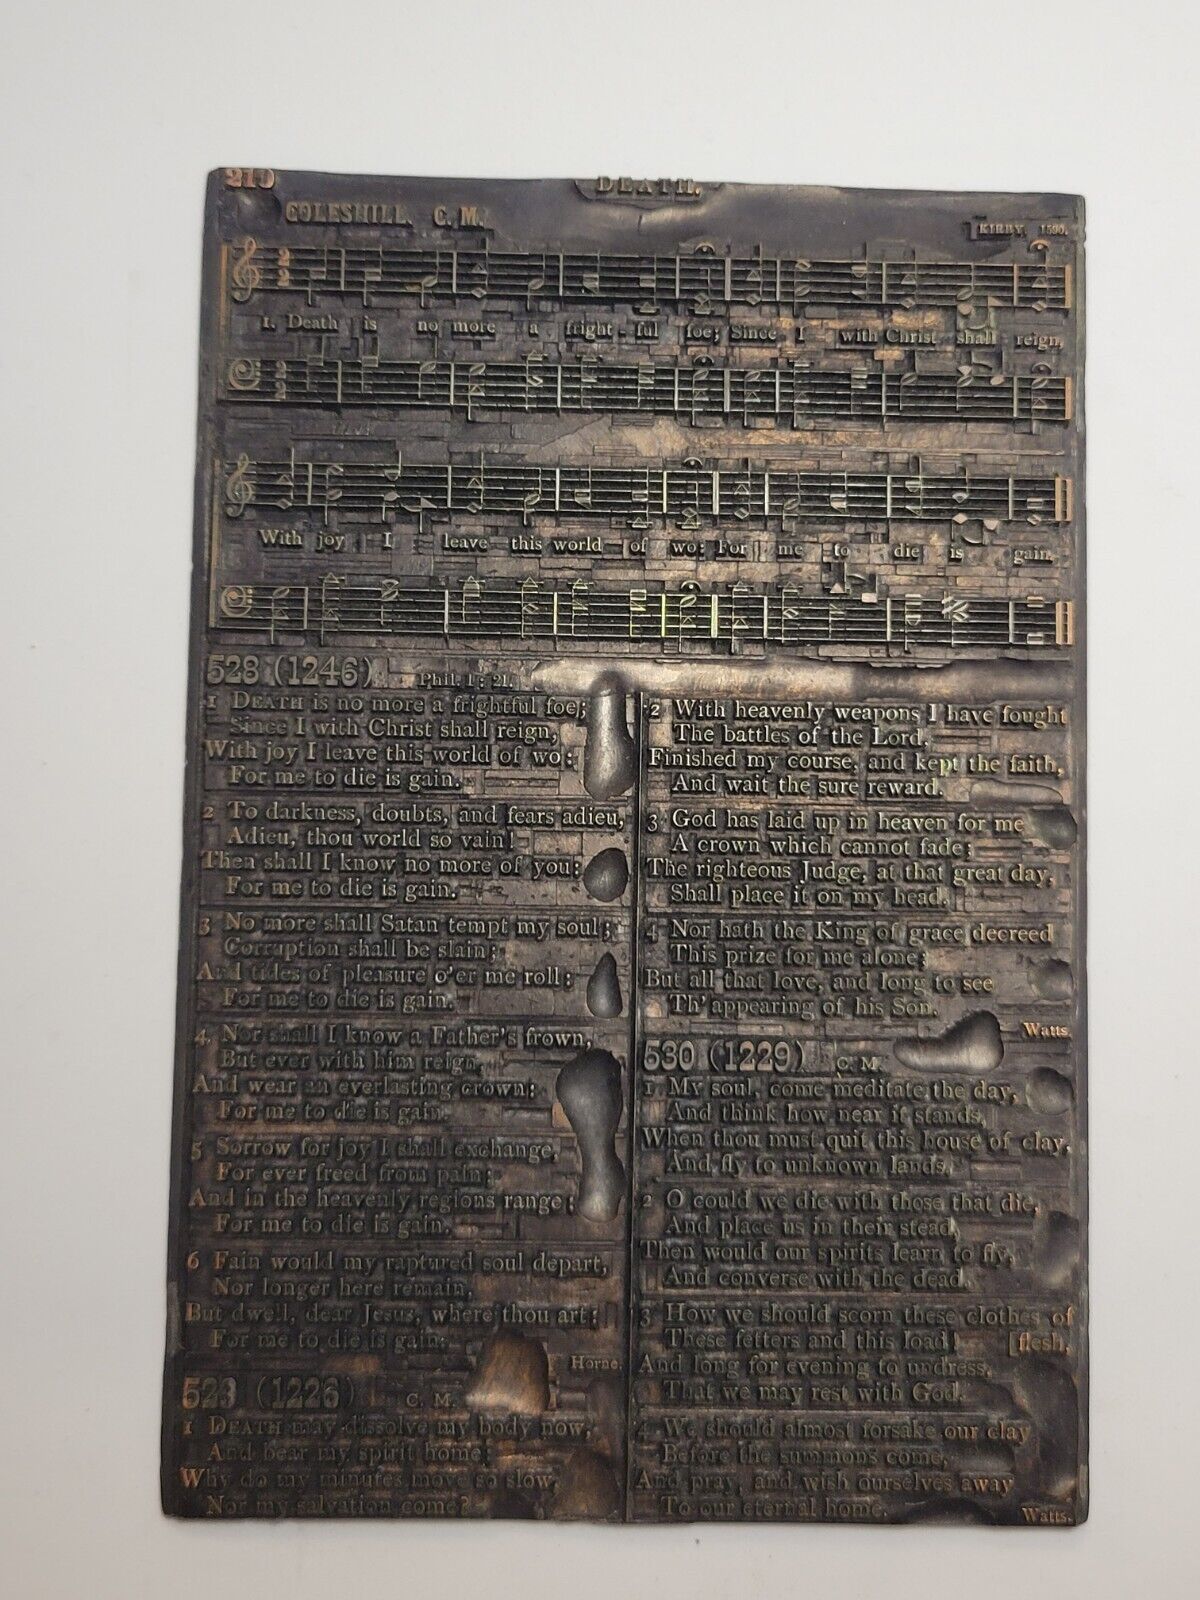 210
DEATH.
COLESHILL. C. M.
KIRBY, 1590.
1. Death is no more a fright - ful foe; Since I with Christ shall reign,
With joy I leave this world of wo: For me to die is gain.
528 (1246) Phil. 1: 21.
1 DEATH is no more a frightful foe;
Since I with Christ shall reign,
With joy I leave this world of wo:
For me to die is gain.
2 To darkness, doubts, and fears adieu,
Adieu, thou world so vain!
Then shall I know no more of you:
For me to die is gain.
3 No more shall Satan tempt my soul;
Corruption shall be slain;
And tides of pleasure o'er me roll:
For me to die is gain.
4. Nor shall I know a Father's frown,
But ever with him reign,
And wear an everlasting crown:
For me to die is gain.
5 Sorrow for joy I shall exchange,
For ever freed from pain;
And in the heavenly regions range:
For me to die is gain.
6 Fain would my raptured soul depart,
Nor longer here remain,
But dwell, dear Jesus, where thou art:
For me to die is gain.
Horne.
529 (1226) C. M.
1 DEATH may dissolve my body now,
And bear my spirit home:
Why do my minutes move so slow,
Nor my salvation come?
2 With heavenly weapons I have fought
The battles of the Lord,
Finished my course, and kept the faith,
And wait the sure reward.
3 God has laid up in heaven for me
A crown which cannot fade;
The righteous Judge, at that great day,
Shall place it on my head.
4 Nor hath the King of grace decreed
This prize for me alone;
But all that love, and long to see
Th' appearing of his Son.
Watts.
530 (1229) C. M.
1. My soul, come meditate the day,
And think how near it stands,
When thou must quit this house of clay,
And fly to unknown lands.
2 O could we die with those that die,
And place us in their stead,
Then would our spirits learn to fly,
And converse with the dead.
3 How we should scorn these clothes of
These fetters and this load! [flesh,
And long for evening to undress,
That we may rest with God.
4 We should almost forsake our clay
Before the summons come,
And pray, and wish ourselves away
To our eternal home.
Watts.